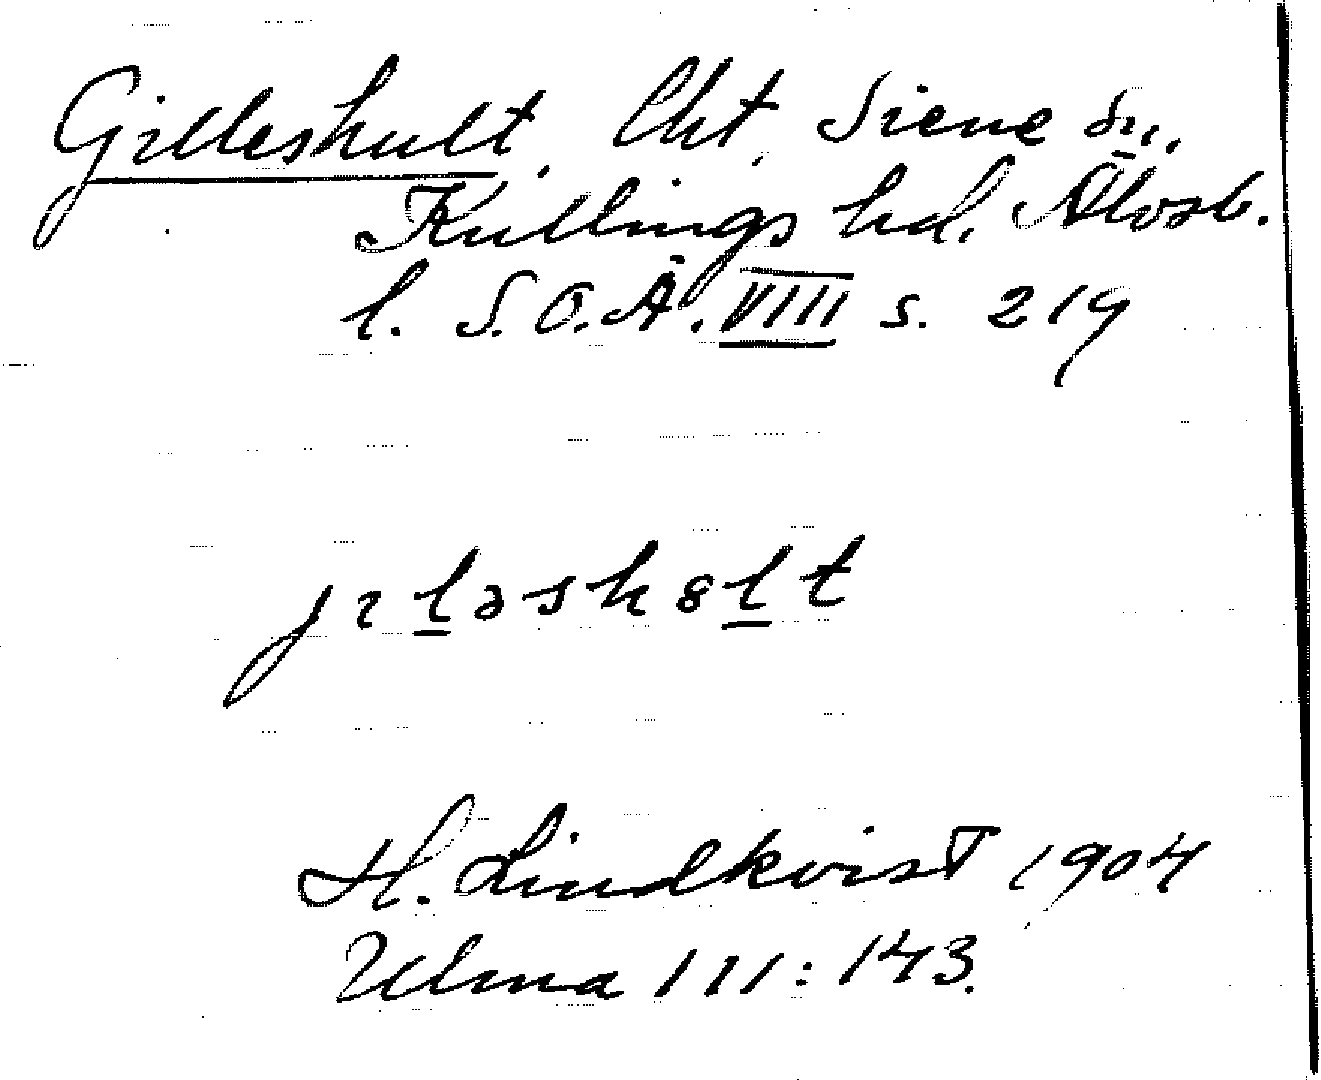 Gilleshult, Cht, Siene sn,
Kullings hd. Älvsb.
l. S.O.Ä. VIII s. 219
jɩl̲əsh8l̲t
H. Lindkvist 1904
Ulma 111:143.